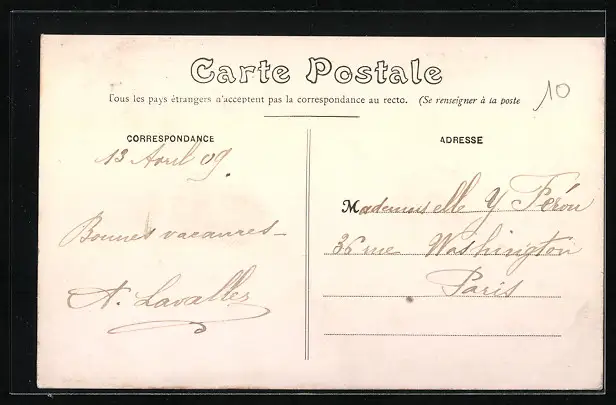 Carte Postale
Tous les pays étrangers n'acceptent pas la correspondance au recto. (Se renseigner à la poste
10
CORRESPONDANCE
13 Avril 09.
Bonnes vacances
A. Lavallez
ADRESSE
Mademoiselle Y Féron
36 rue Washington
Paris